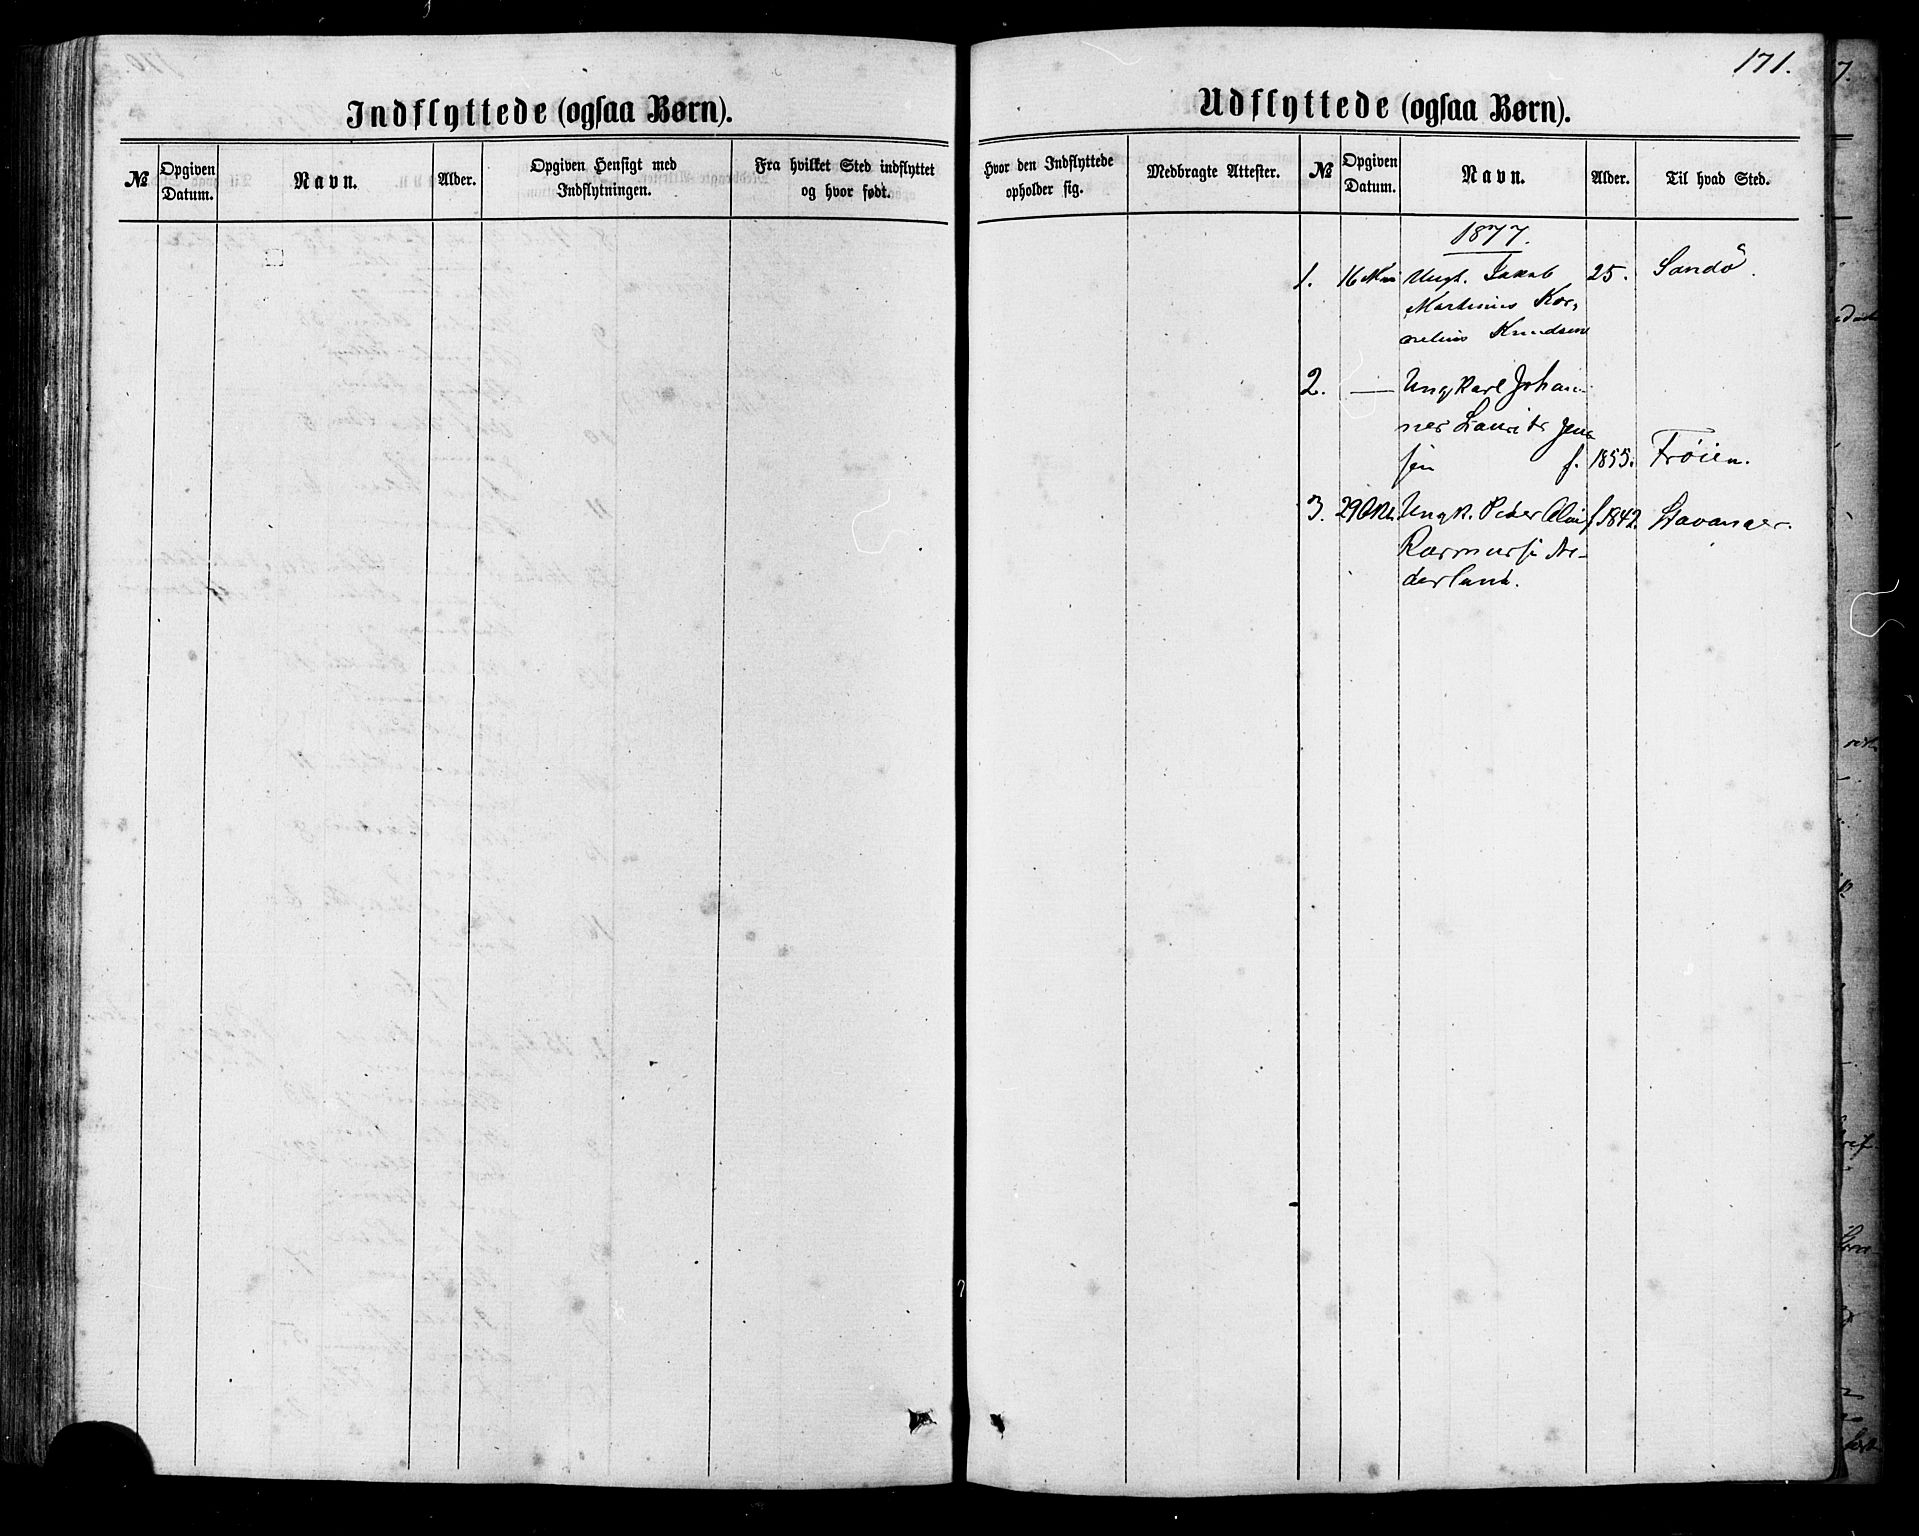 Indflyttede (ogsaa Børn).
№
Opgiven Datum.
Navn.
Alder.
Opgiven Hensigt med Indflytningen.
Fra hvilket Sted indflyttet og hvor født.
171.
Udflyttede (ogsaa Børn).
Hvor den Indflyttede opholder sig.
Medbragte Attester.
№
Opgiven Datum.
Navn.
Alder.
Til hvad Sted.
1877.
1. 16 Mai Ungk. Jakob 25. Sandö.
Martinus Kor-
nelius Knudsen
2. — Ungkarl Johan-
nes Lauritz Jens-
sen f. 1855. Frøien.
3. 29 Okt. Ungk. Peder f 1842. Stavanger.
Rasmuss. Ne-
derland.